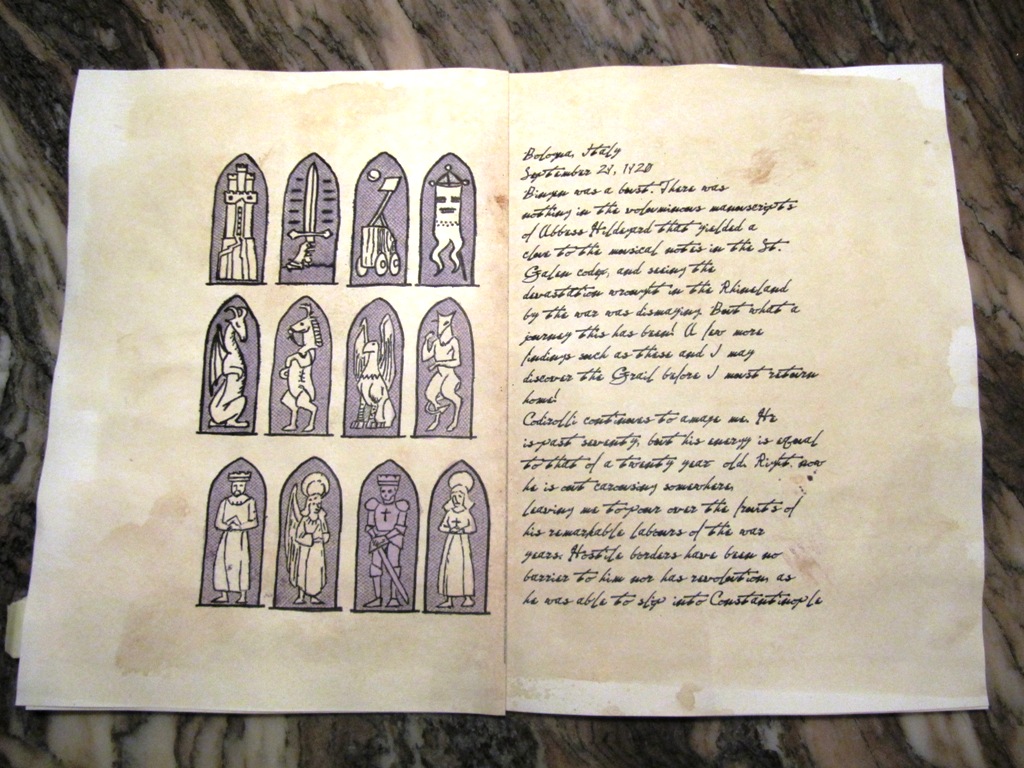 Bologna, Italy
September 28, 1920
Bingen was a bust. There was
nothing in the voluminous manuscripts
of Abbess Hildegard that yielded a
clue to the musical notes in the St.
Galen codex, and seeing the
devastation wrought in the Rhineland
by the war was dismaying. But what a
journey this has been! A few more
findings such as these and I may
discover the Grail before I must return
home!
Codirolli continues to amaze me. He
is past seventy, but his energy is equal
to that of a twenty year old. Right now
he is out carousing somewhere,
leaving me to pour over the fruits of
his remarkable labours of the war
years. Hostile borders have been no
barrier to him nor has revolution, as
he was able to slip into Constantinople